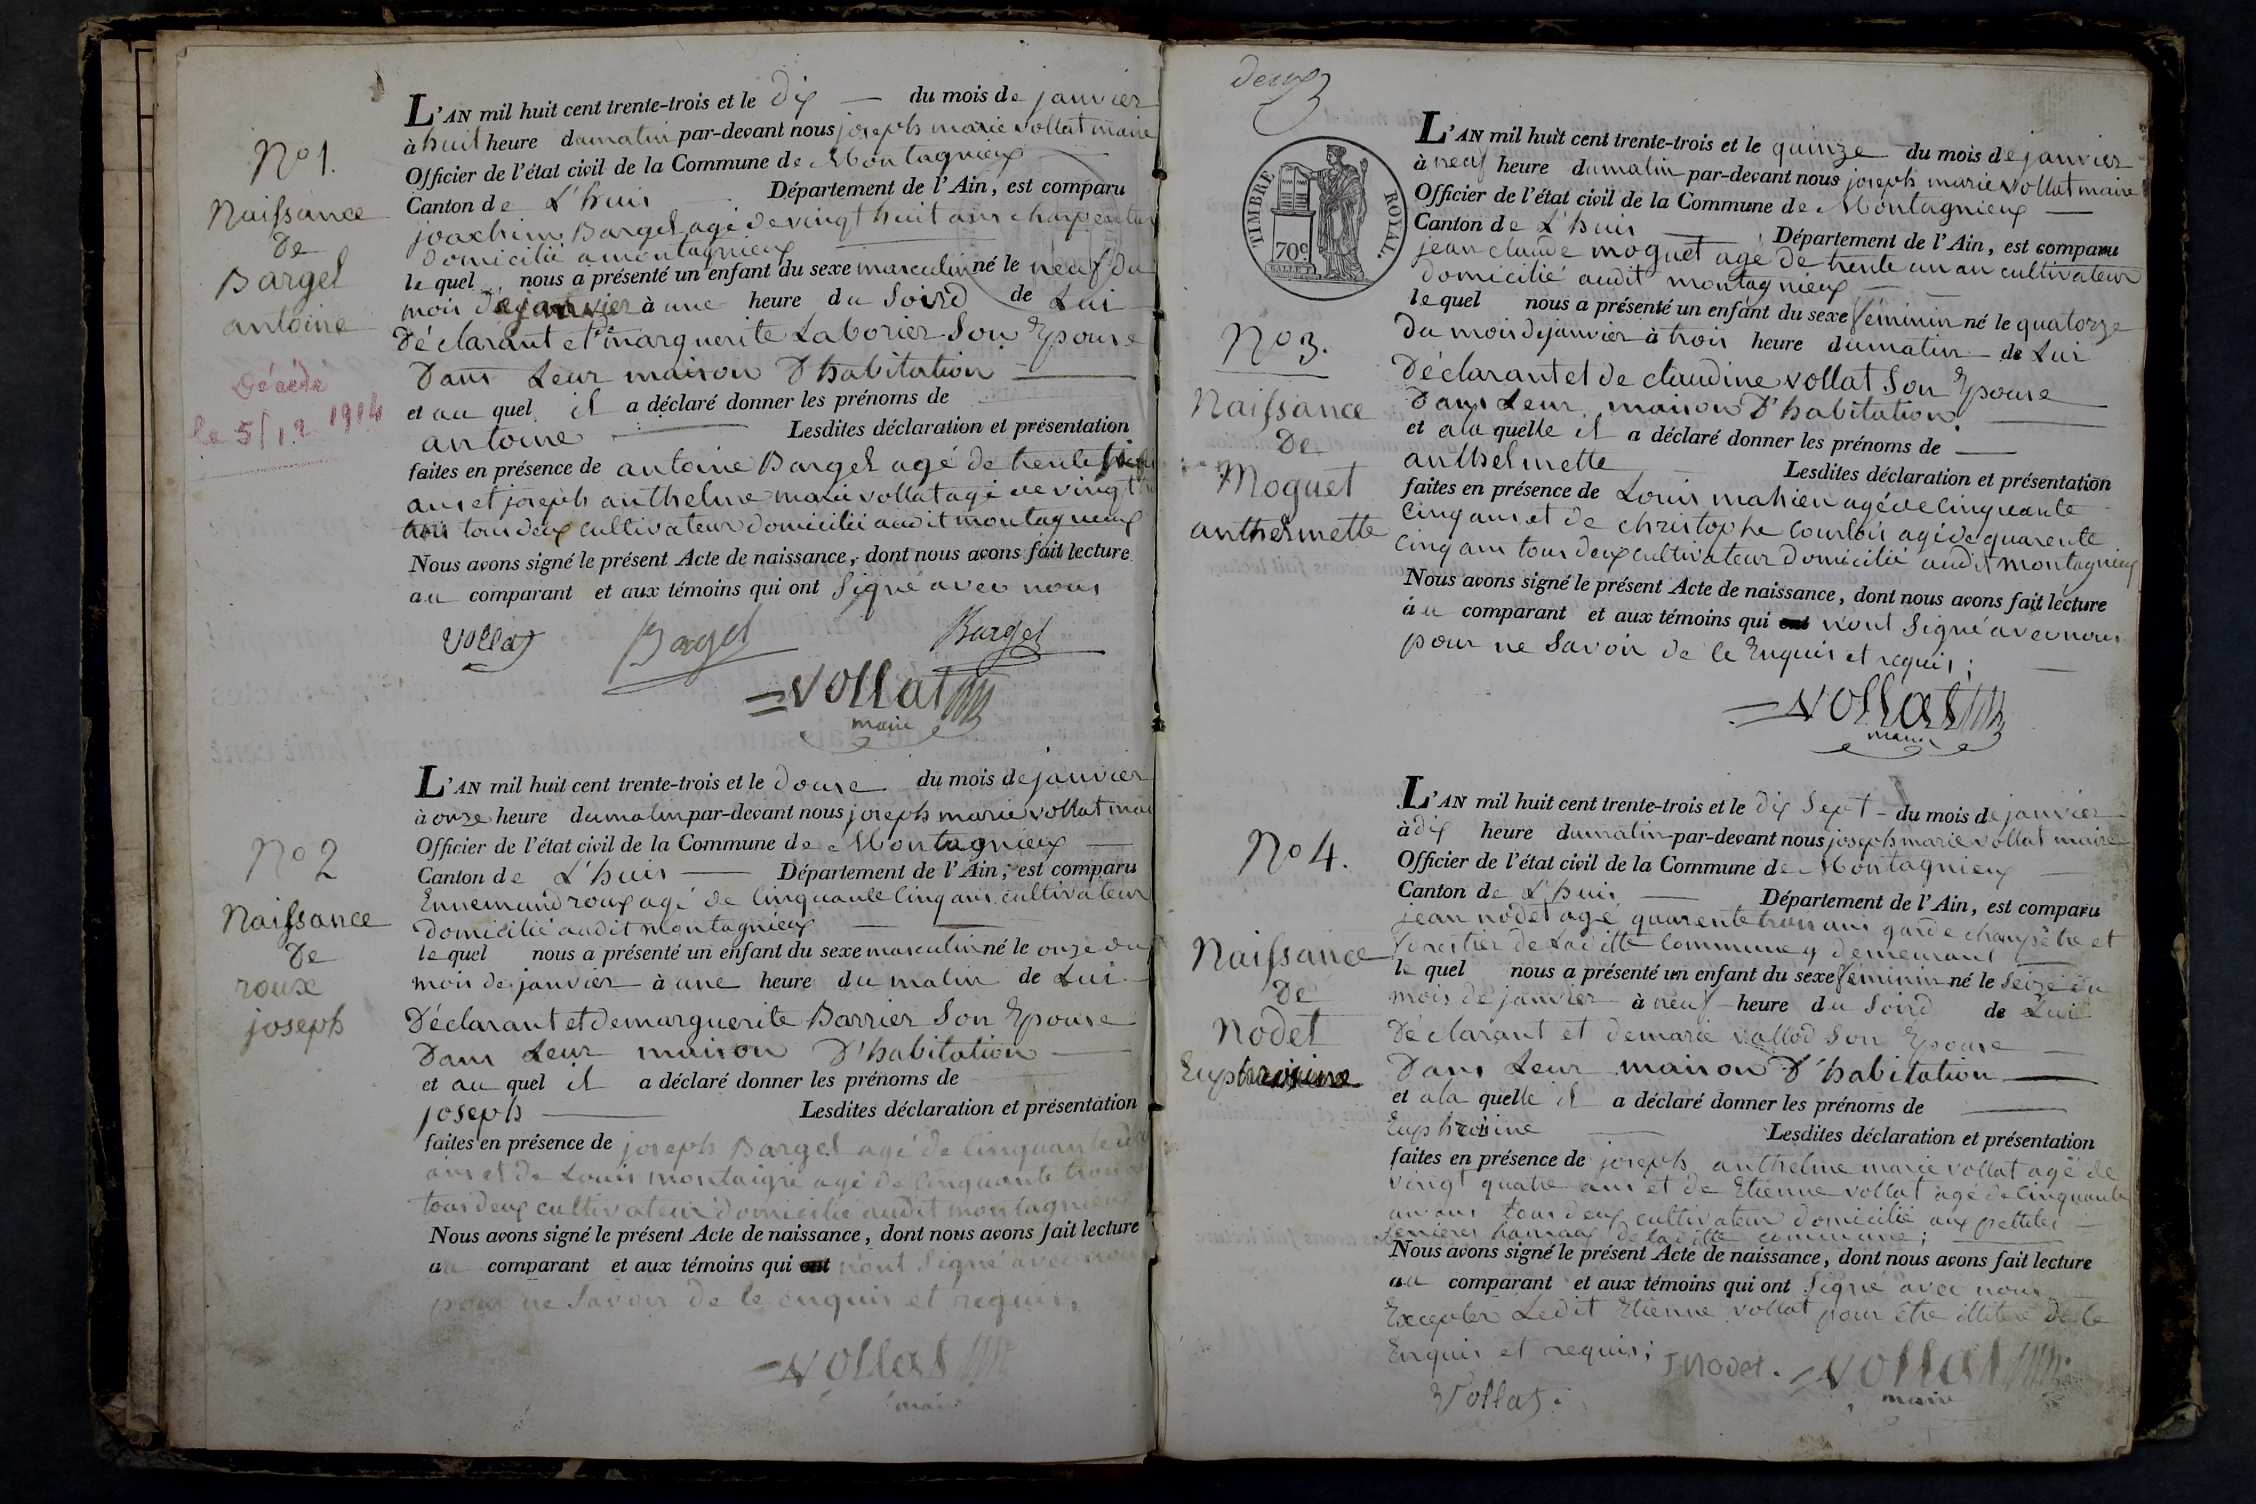 N° 1.
Naissance
De
Bargel
antoine
Décédé
le 5/12 1914
L'AN mil huit cent trente-trois et le dix du mois de janvier
à huit heure du matin par-devant nous joseph marie vollat maire
Officier de l'état civil de la Commune de Montagnieux
Canton de L'huis Département de l'Ain, est comparu
joachim Bargel agé de vingt huit ans charpentier
domicilié a montagnieux
le quel nous a présenté un enfant du sexe masculin né le neuf du
mois de janvier à une heure du soird de Lui
Déclarant et marguerite Laborier son Epouse
Dans Leur maison D'habitation
et au quel il a déclaré donner les prénoms de
antoine Lesdites déclaration et présentation
faites en présence de antoine Bargel agé de trente
ans et joseph anthelme marie vollat agé de vingt
tous deux cultivateur domicilié audit montagnieux
Nous avons signé le présent Acte de naissance, dont nous avons fait lecture
au comparant et aux témoins qui ont signé avec nous
Vollat Bargel Bargel
Vollat
maire
N° 2
Naissance
De
roux
joseph
L'AN mil huit cent trente-trois et le douse du mois de janvier
à onze heure du matin par-devant nous joseph marie vollat mai
Officier de l'état civil de la Commune de Montagnieux
Canton de L'huis Département de l'Ain, est comparu
Ennemand roux agé de Cinquante Cinq ans cultivateur
domicilié audit montagnieux
le quel nous a présenté un enfant du sexe masculin né le onze du
mois de janvier à une heure du matin de Lui
Déclarant et de marguerite Barrier Son Epouse
Dans Leur maison D'habitation
et au quel il a déclaré donner les prénoms de
joseph Lesdites déclaration et présentation
faites en présence de joseph Bargel agé de Cinquante
ans et de Louis montaigre agé de Cinquante trois
tous deux cultivateur domicilié audit montagnieux
Nous avons signé le présent Acte de naissance, dont nous avons fait lecture
au comparant et aux témoins qui ont n'ont Signé avec nous
pour ne Savoir de le enquis et requis,
Vollat
maire
deux
TIMBRE ROYAL.
70c
L'AN mil huit cent trente-trois et le quinze du mois de janvier
à neuf heure du matin par-devant nous joseph marie vollat maire
Officier de l'état civil de la Commune de Montagnieux
Canton de L'huis Département de l'Ain, est comparu
jean claude moguet agé de trente un an cultivateur
domicilié audit montagnieux
le quel nous a présenté un enfant du sexe féminin né le quatorze
Du mois de janvier à trois heure du matin de Lui
Déclarant et de claudine vollat Son Epouse
Dans Leur maison D'habitation
et a la quelle il a déclaré donner les prénoms de
anthelmette Lesdites déclaration et présentation
faites en présence de Louis mahieu agé de Cinquante
Cinq ans et de christophe Courtois agé de quarente
Cinq ans tous deux cultivateur domicilié audit montagnieux
Nous avons signé le présent Acte de naissance, dont nous avons fait lecture
au comparant et aux témoins qui ont n'ont Signé avec nous
pour ne Savoir de le Enquis et requis;
Vollat
maire
N° 3.
Naissance
De
Moguet
anthelmette
N° 4.
Naissance
De
Nodet
Euphrosine
L'AN mil huit cent trente-trois et le dix Sept du mois de janvier
à dix heure du matin par-devant nous joseph marie vollat maire
Officier de l'état civil de la Commune de Montagnieux
Canton de L'huis Département de l'Ain, est comparu
jean nodet agé quarente trois ans garde champêtre et
forestier de Laditte Commune y demeurant
le quel nous a présenté un enfant du sexe féminin né le Seize du
mois de janvier à neuf heure du Soird de Lui
Déclarant et de marie vallod Son Epouse
Dans Leur maison D'habitation
et a la quelle il a déclaré donner les prénoms de
Euphrosine Lesdites déclaration et présentation
faites en présence de joseph anthelme marie vollat agé de
vingt quatre ans et de Etienne vollat agé de Cinquante
un ans tous deux cultivateur domicilié aux pettites
hamaux de laditte commune;
Nous avons signé le présent Acte de naissance, dont nous avons fait lecture
au comparant et aux témoins qui ont Signé avec nous
Excepter Ledit Etienne vollat pour être illitéré de le
Enquis et requis; J Nodet. Vollat
maire
Vollat.